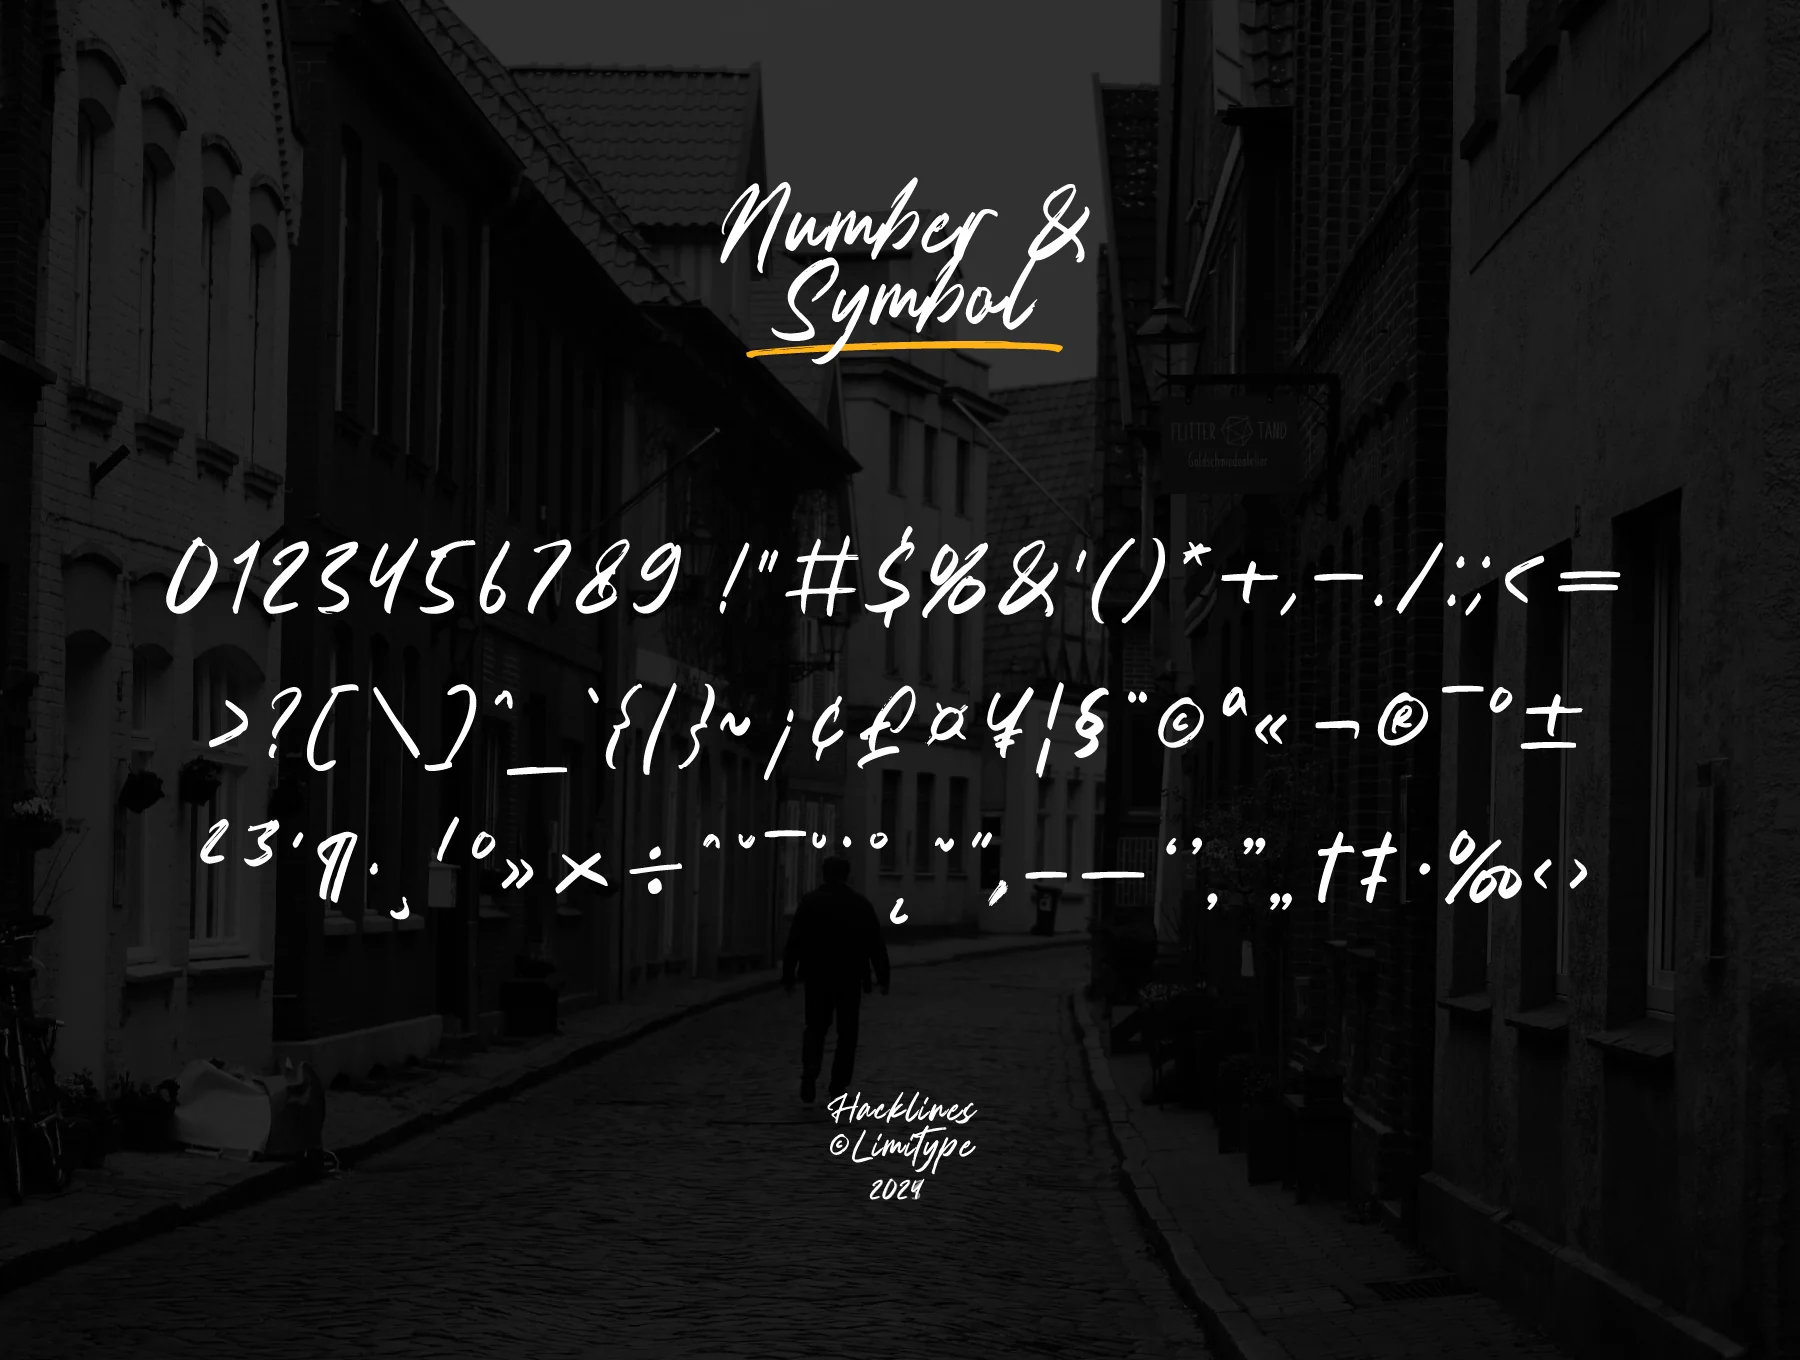 Number &
Symbol
FLITTER TAND
Goldschmiedeatelier
0123456789 !"#$%&'()*+,-./:;<=
>?[\]^_`{|}~¡¢£¤¥¦§¨©ª«¬®¯°±
²³´¶·¸¹º»×÷ˆˇˉ˘˙˚˛˜˝‚–—‘’‚”„†‡•‰‹›
Hacklines
©Limitype
2024